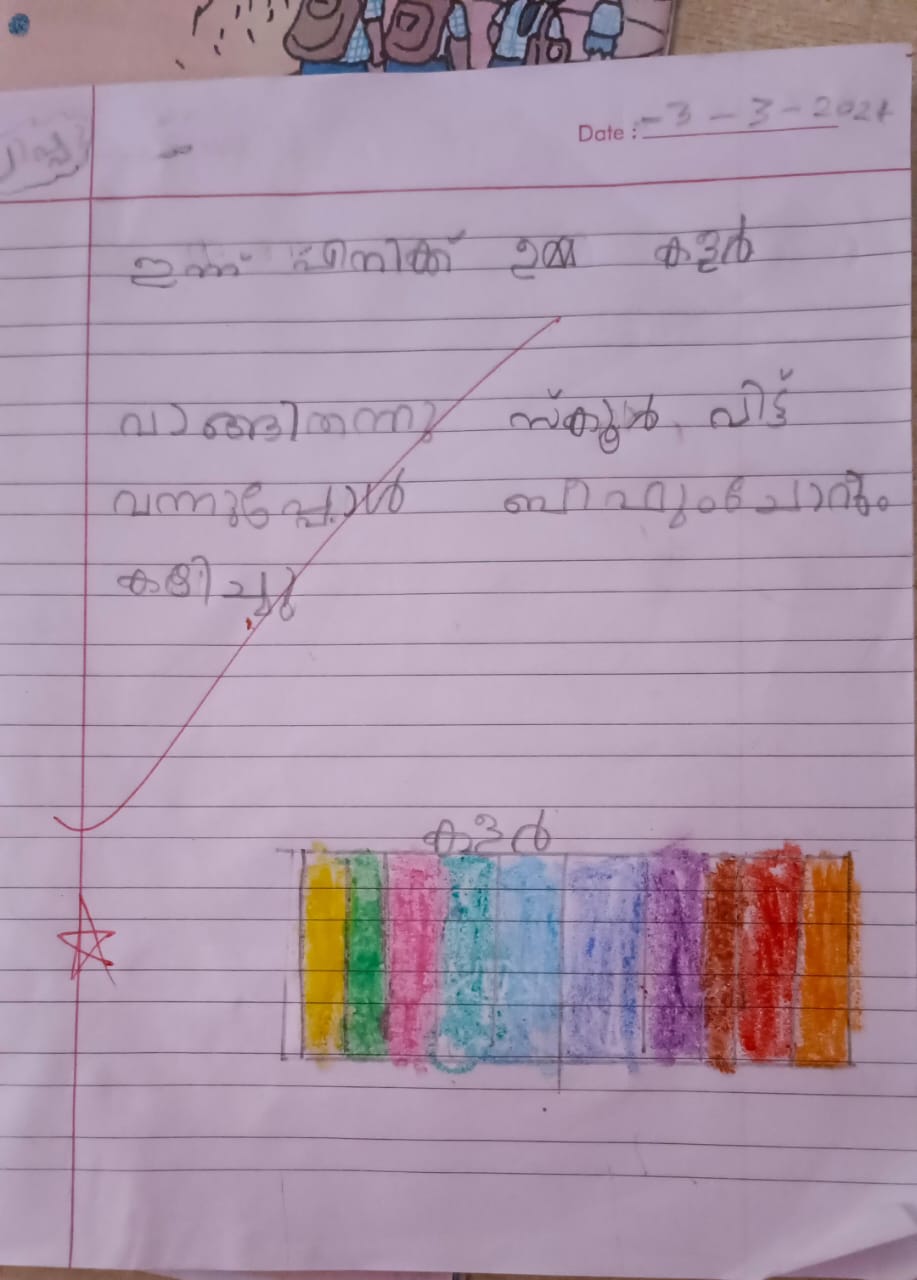 Date : -3 - 3 - 2024
ഇന്ന് എനിക്ക് ഉമ്മ കളർ
വാങ്ങിതന്നു സ്കൂൾ വിട്ട്
വന്നുപ്പോൾ
കളിച്ചു
കളർ